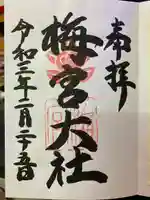 奉拝
梅宮大社
令和二年二月二十五日